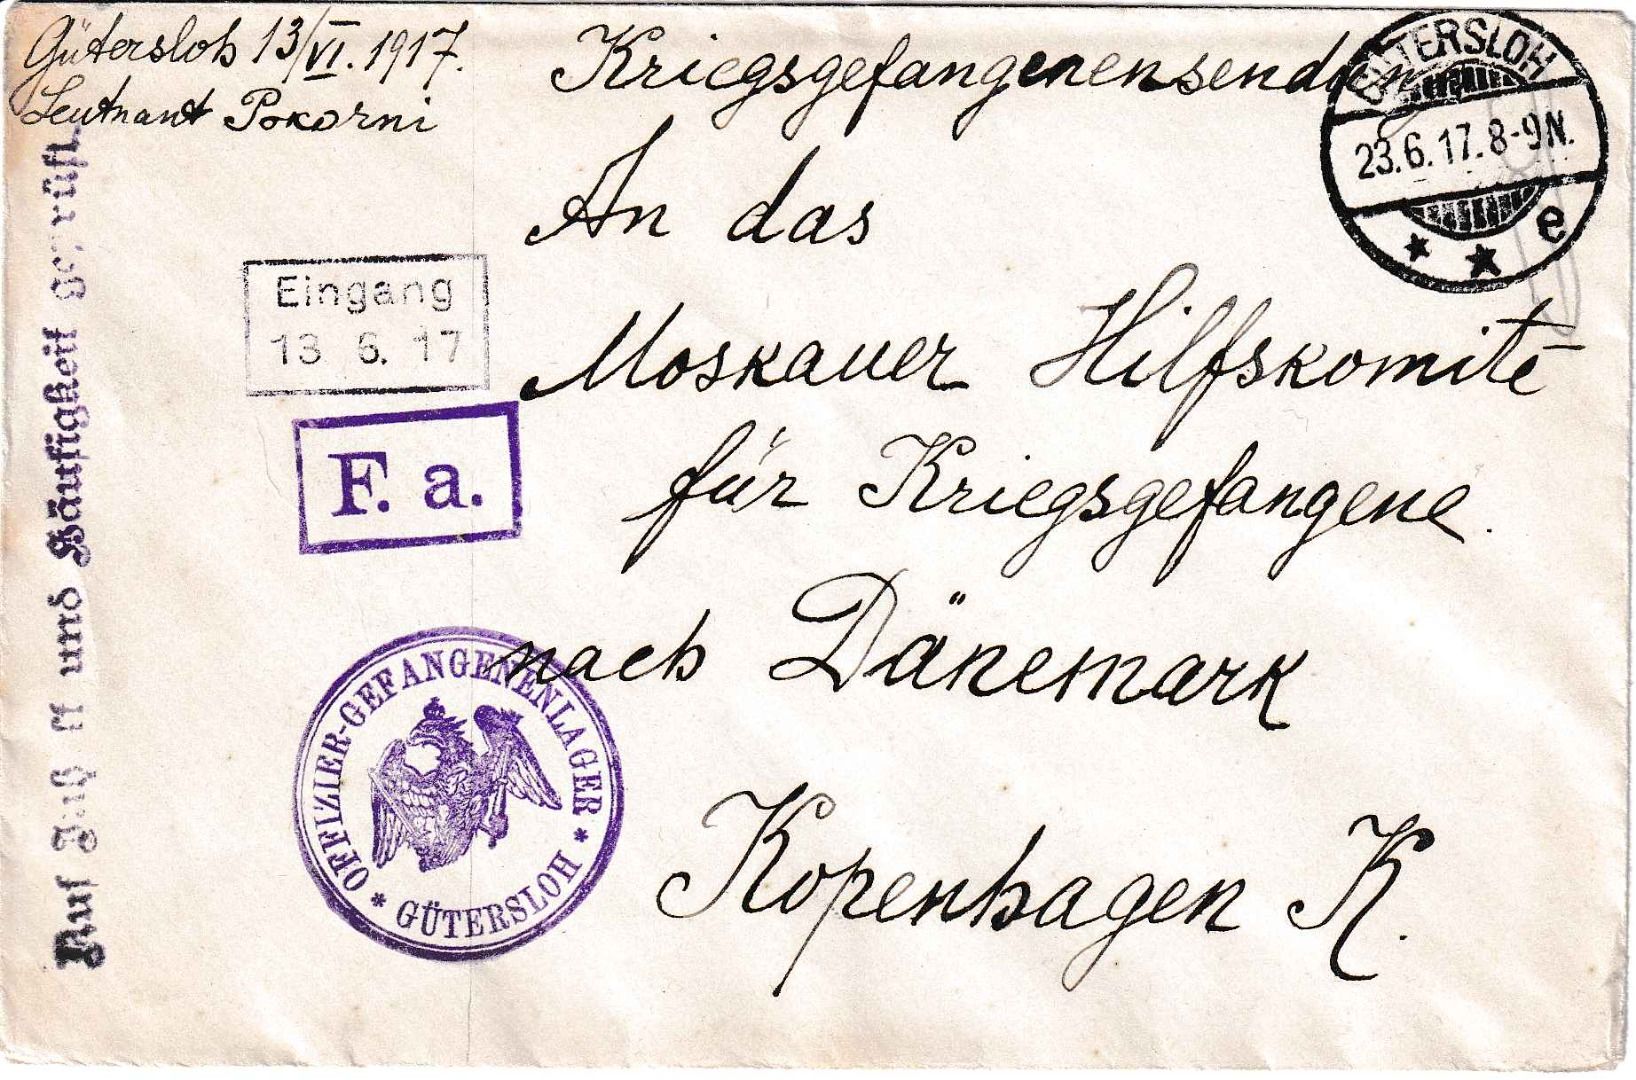 Gütersloh 13/VI. 1917.
Leutnant Pokorni
Kriegsgefangenensendung
GÜTERSLOH
23.6.17.8-9N.
* * e
An das
Moskauer Hilfskomité
für Kriegsgefangene.
nach Dänemark
Kopenhagen K.
Eingang
13 6. 17
F. a.
OFFIZIER-GEFANGENENLAGER
* GÜTERSLOH *
Auf und Häufigkeit geprüft